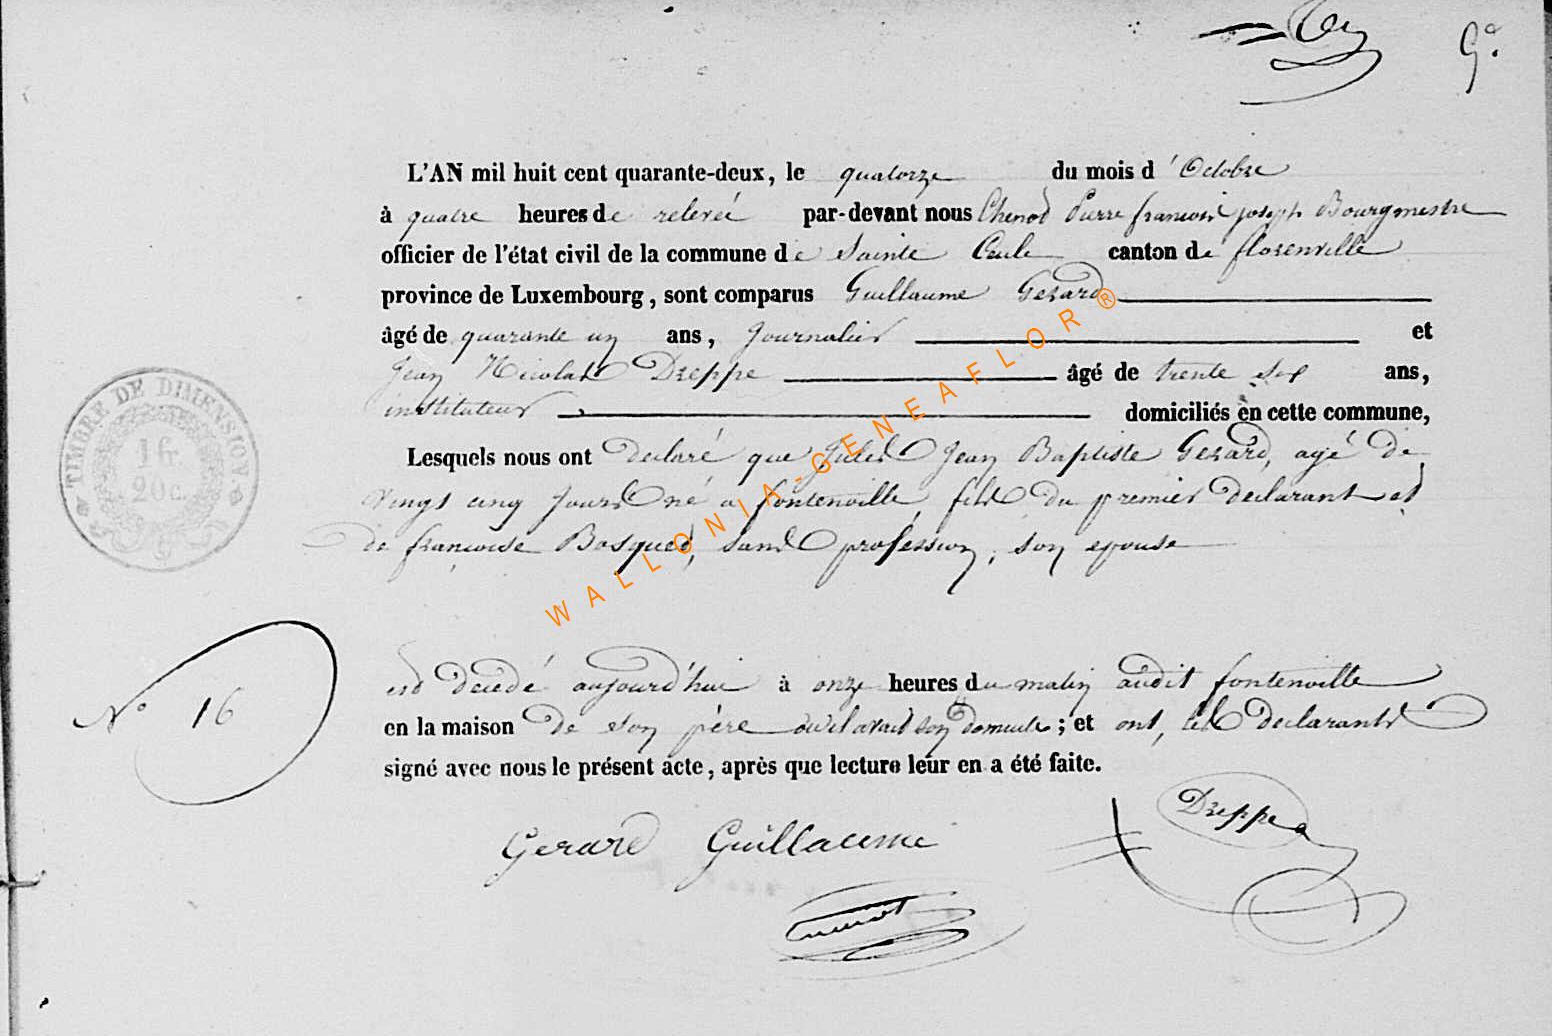 9e
L'AN mil huit cent quarante-deux, le quatorze du mois d'Octobre
à quatre heures de relevée par-devant nous Chenot Pierre françois joseph Bourgmestre
officier de l'état civil de la commune de Sainte Cecile canton de florenville
province de Luxembourg, sont comparus Guillaume Gerard
âgé de quarante un ans, journalier et
Jean Nicolas Dreppe âgé de trente six ans,
instituteur domiciliés en cette commune,
TIMBRE DE DIMENSION.
1 fr.
20 c.
Lesquels nous ont declaré que Jules Jean Baptiste Gerard, agé de
vingt cinq jours né a fontenoille, fils du premier declarant et
de françoise Bosquet, sans profession, son epouse
WALLONIA-GENEAFLOR®
est decedé aujourd'hui à onze heures du matin audit fontenoille
N° 16
en la maison de son père ou il avait son domicile ; et ont, les declarants
signé avec nous le présent acte, après que lecture leur en a été faite.
Dreppe
Gerard Guillaume
Chenot